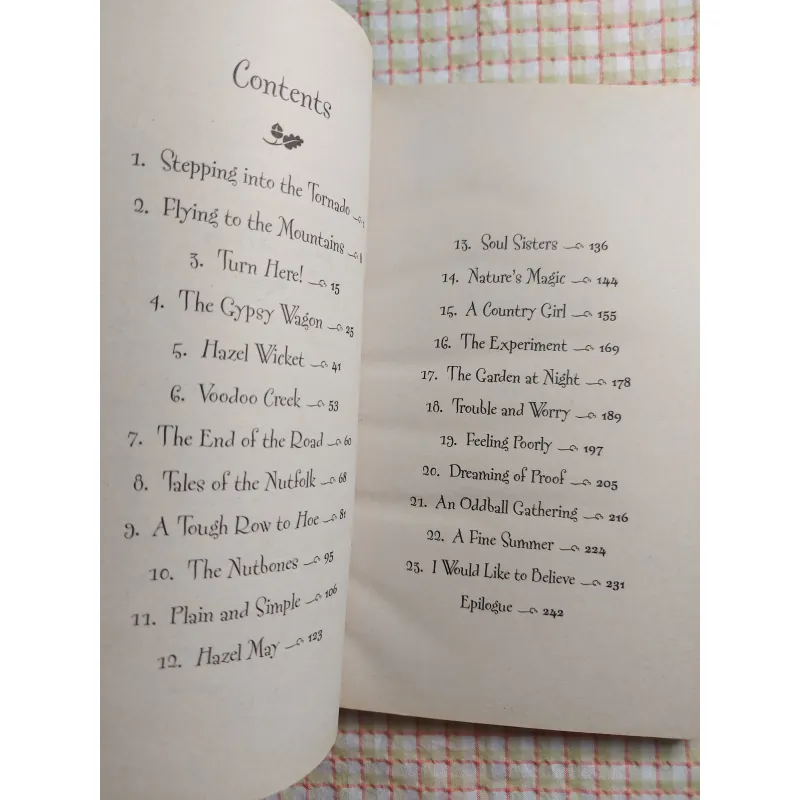 Contents
1. Stepping into the Tornado 1
2. Flying to the Mountains 8
3. Turn Here! 15
4. The Gypsy Wagon 25
5. Hazel Wicket 41
6. Voodoo Creek 53
7. The End of the Road 60
8. Tales of the Nutfolk 68
9. A Tough Row to Hoe 81
10. The Nutbones 95
11. Plain and Simple 106
12. Hazel May 123
13. Soul Sisters 136
14. Nature's Magic 144
15. A Country Girl 155
16. The Experiment 169
17. The Garden at Night 178
18. Trouble and Worry 189
19. Feeling Poorly 197
20. Dreaming of Proof 205
21. An Oddball Gathering 216
22. A Fine Summer 224
23. I Would Like to Believe 231
Epilogue 242